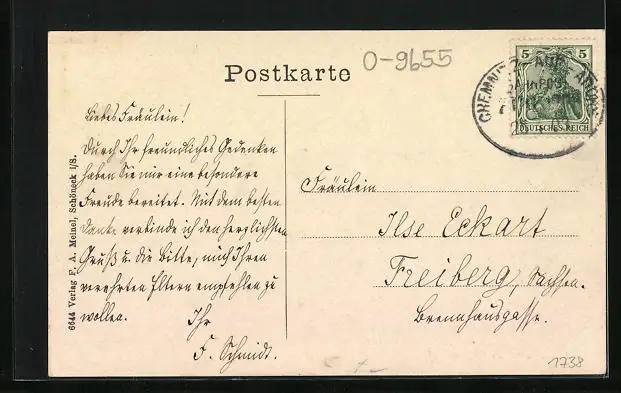 O-9655
Postkarte
5 5
DEUTSCHES REICH
CHEMNITZ-AUE-ADORF
BAHNPOST
Liebes Fräulein!
Durch Ihr freundliches Gedenken
haben Sie mir eine besondere
Freude bereitet. Mit dem besten
Dank verbinde ich den herzlichsten
Gruß u. die Bitte, mich Ihren
verehrten Eltern empfehlen zu
wollen. Ihr
F. Schmidt.
Fräulein
Ilse Eckart
Freiberg, Sachsen.
Brennhausgasse.
6644 Verlag F. A. Meinel, Schöneck i/S.
1738